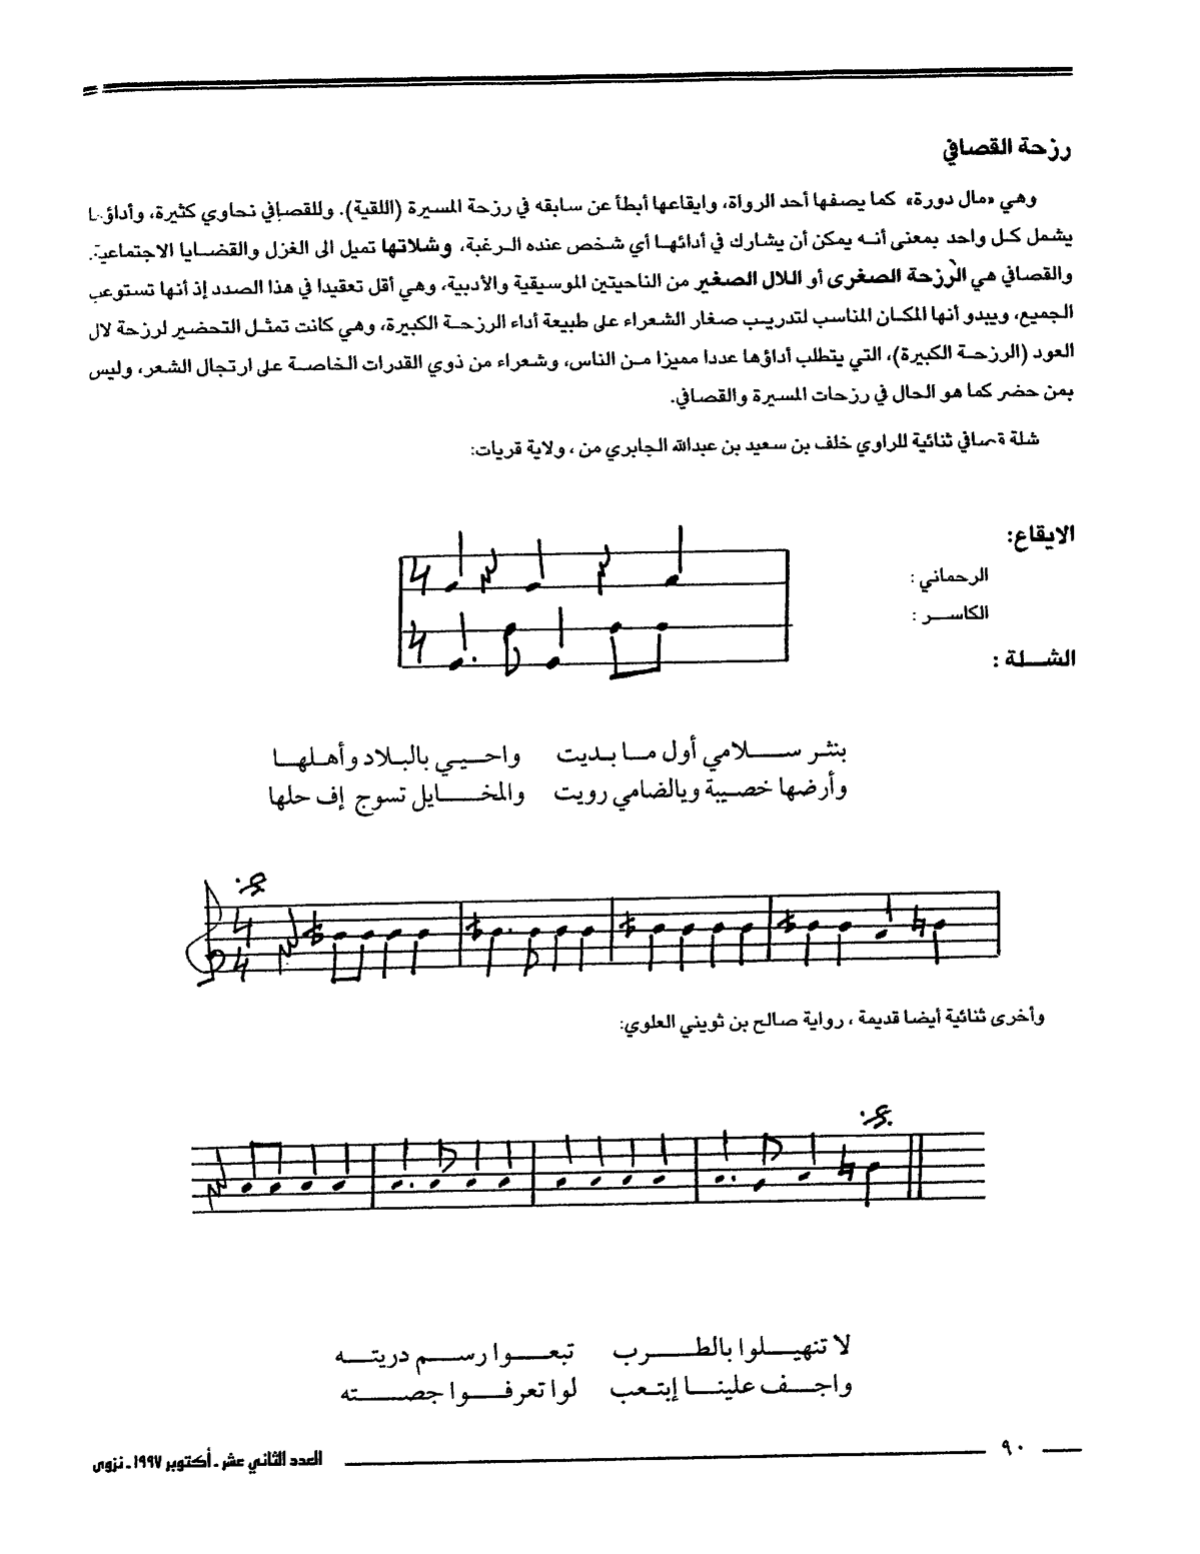 رزحة القصافي
وهي «مال دورة» كما يصفها أحد الرواة، وايقاعها أبطأ عن سابقه في رزحة المسيرة (اللقية). وللقصافي نحاوي كثيرة، وأداؤها
يشمل كل واحد بمعنى أنه يمكن أن يشارك في أدائها أي شخص عنده الرغبة، وشلاتها تميل الى الغزل والقضايا الاجتماعية.
والقصافي هي الرزحة الصغرى أو اللال الصغير من الناحيتين الموسيقية والأدبية، وهي أقل تعقيدا في هذا الصدد إذ أنها تستوعب
الجميع، ويبدو أنها المكان المناسب لتدريب صغار الشعراء على طبيعة أداء الرزحة الكبيرة، وهي كانت تمثل التحضير لرزحة لال
العود (الرزحة الكبيرة)، التي يتطلب أداؤها عددا مميزا من الناس، وشعراء من ذوي القدرات الخاصة على ارتجال الشعر، وليس
بمن حضر كما هو الحال في رزحات المسيرة والقصافي.
شلة قصافي ثنائية للراوي خلف بن سعيد بن عبدالله الجابري من ، ولاية قريات:
الايقاع:
الرحماني :
الكاسر :
الشلة :
بنثر سلامي أول ما بديت واحيي بالبلاد وأهلها
وأرضها خصيبة ويالضامي رويت والمخايل تسوج إف حلها
وأخرى ثنائية أيضا قديمة ، رواية صالح بن ثويني العلوي:
لا تنهيلوا بالطرب تبعوا رسم دريته
واجف علينا إبتعب لوا تعرفوا جصته
٩٠ العدد الثاني عشر ـ أكتوبر ١٩٩٧ ـ نزوى